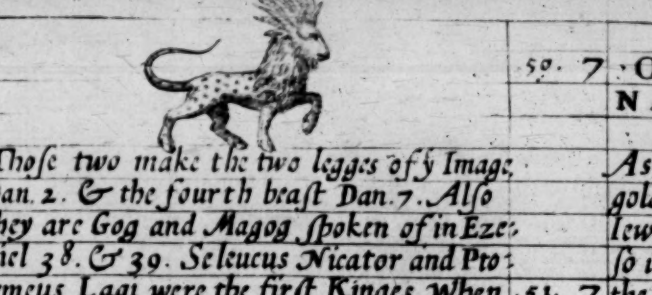 59. 7 · C
N
Those two make the two legges of ÿ Image
an. 2. & the fourth beast Dan. 7. Also
hey are Gog and Magog spoken of in Eze:
iel 38. & 39. Seleucus Nicator and Pto:
emeus Lagi were the first Kinges. When 51. 7 the
As
gol
Iew
so